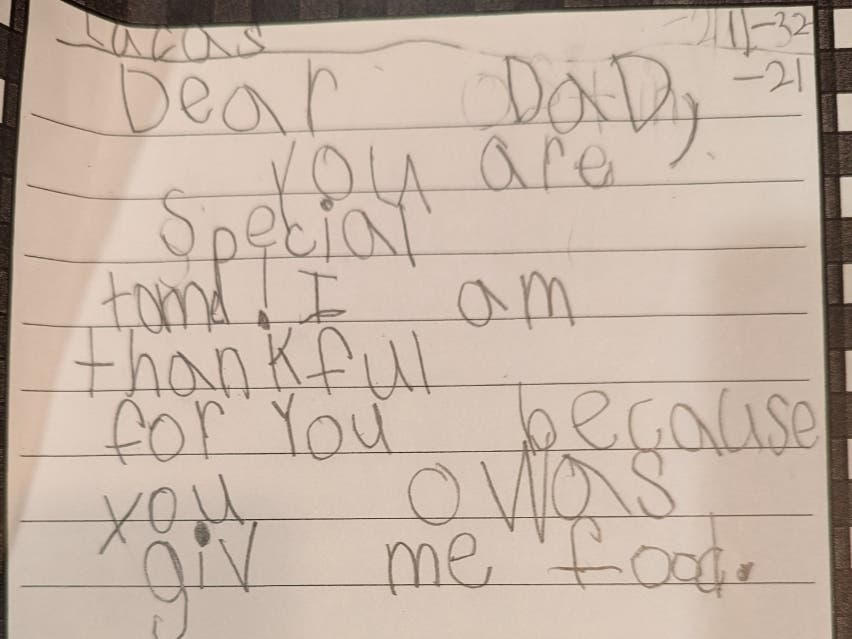 Lucas
11-32
-21
Dear DaD,
you are
special
tomd! I am
thankful
for You because
you owas
giv me food.